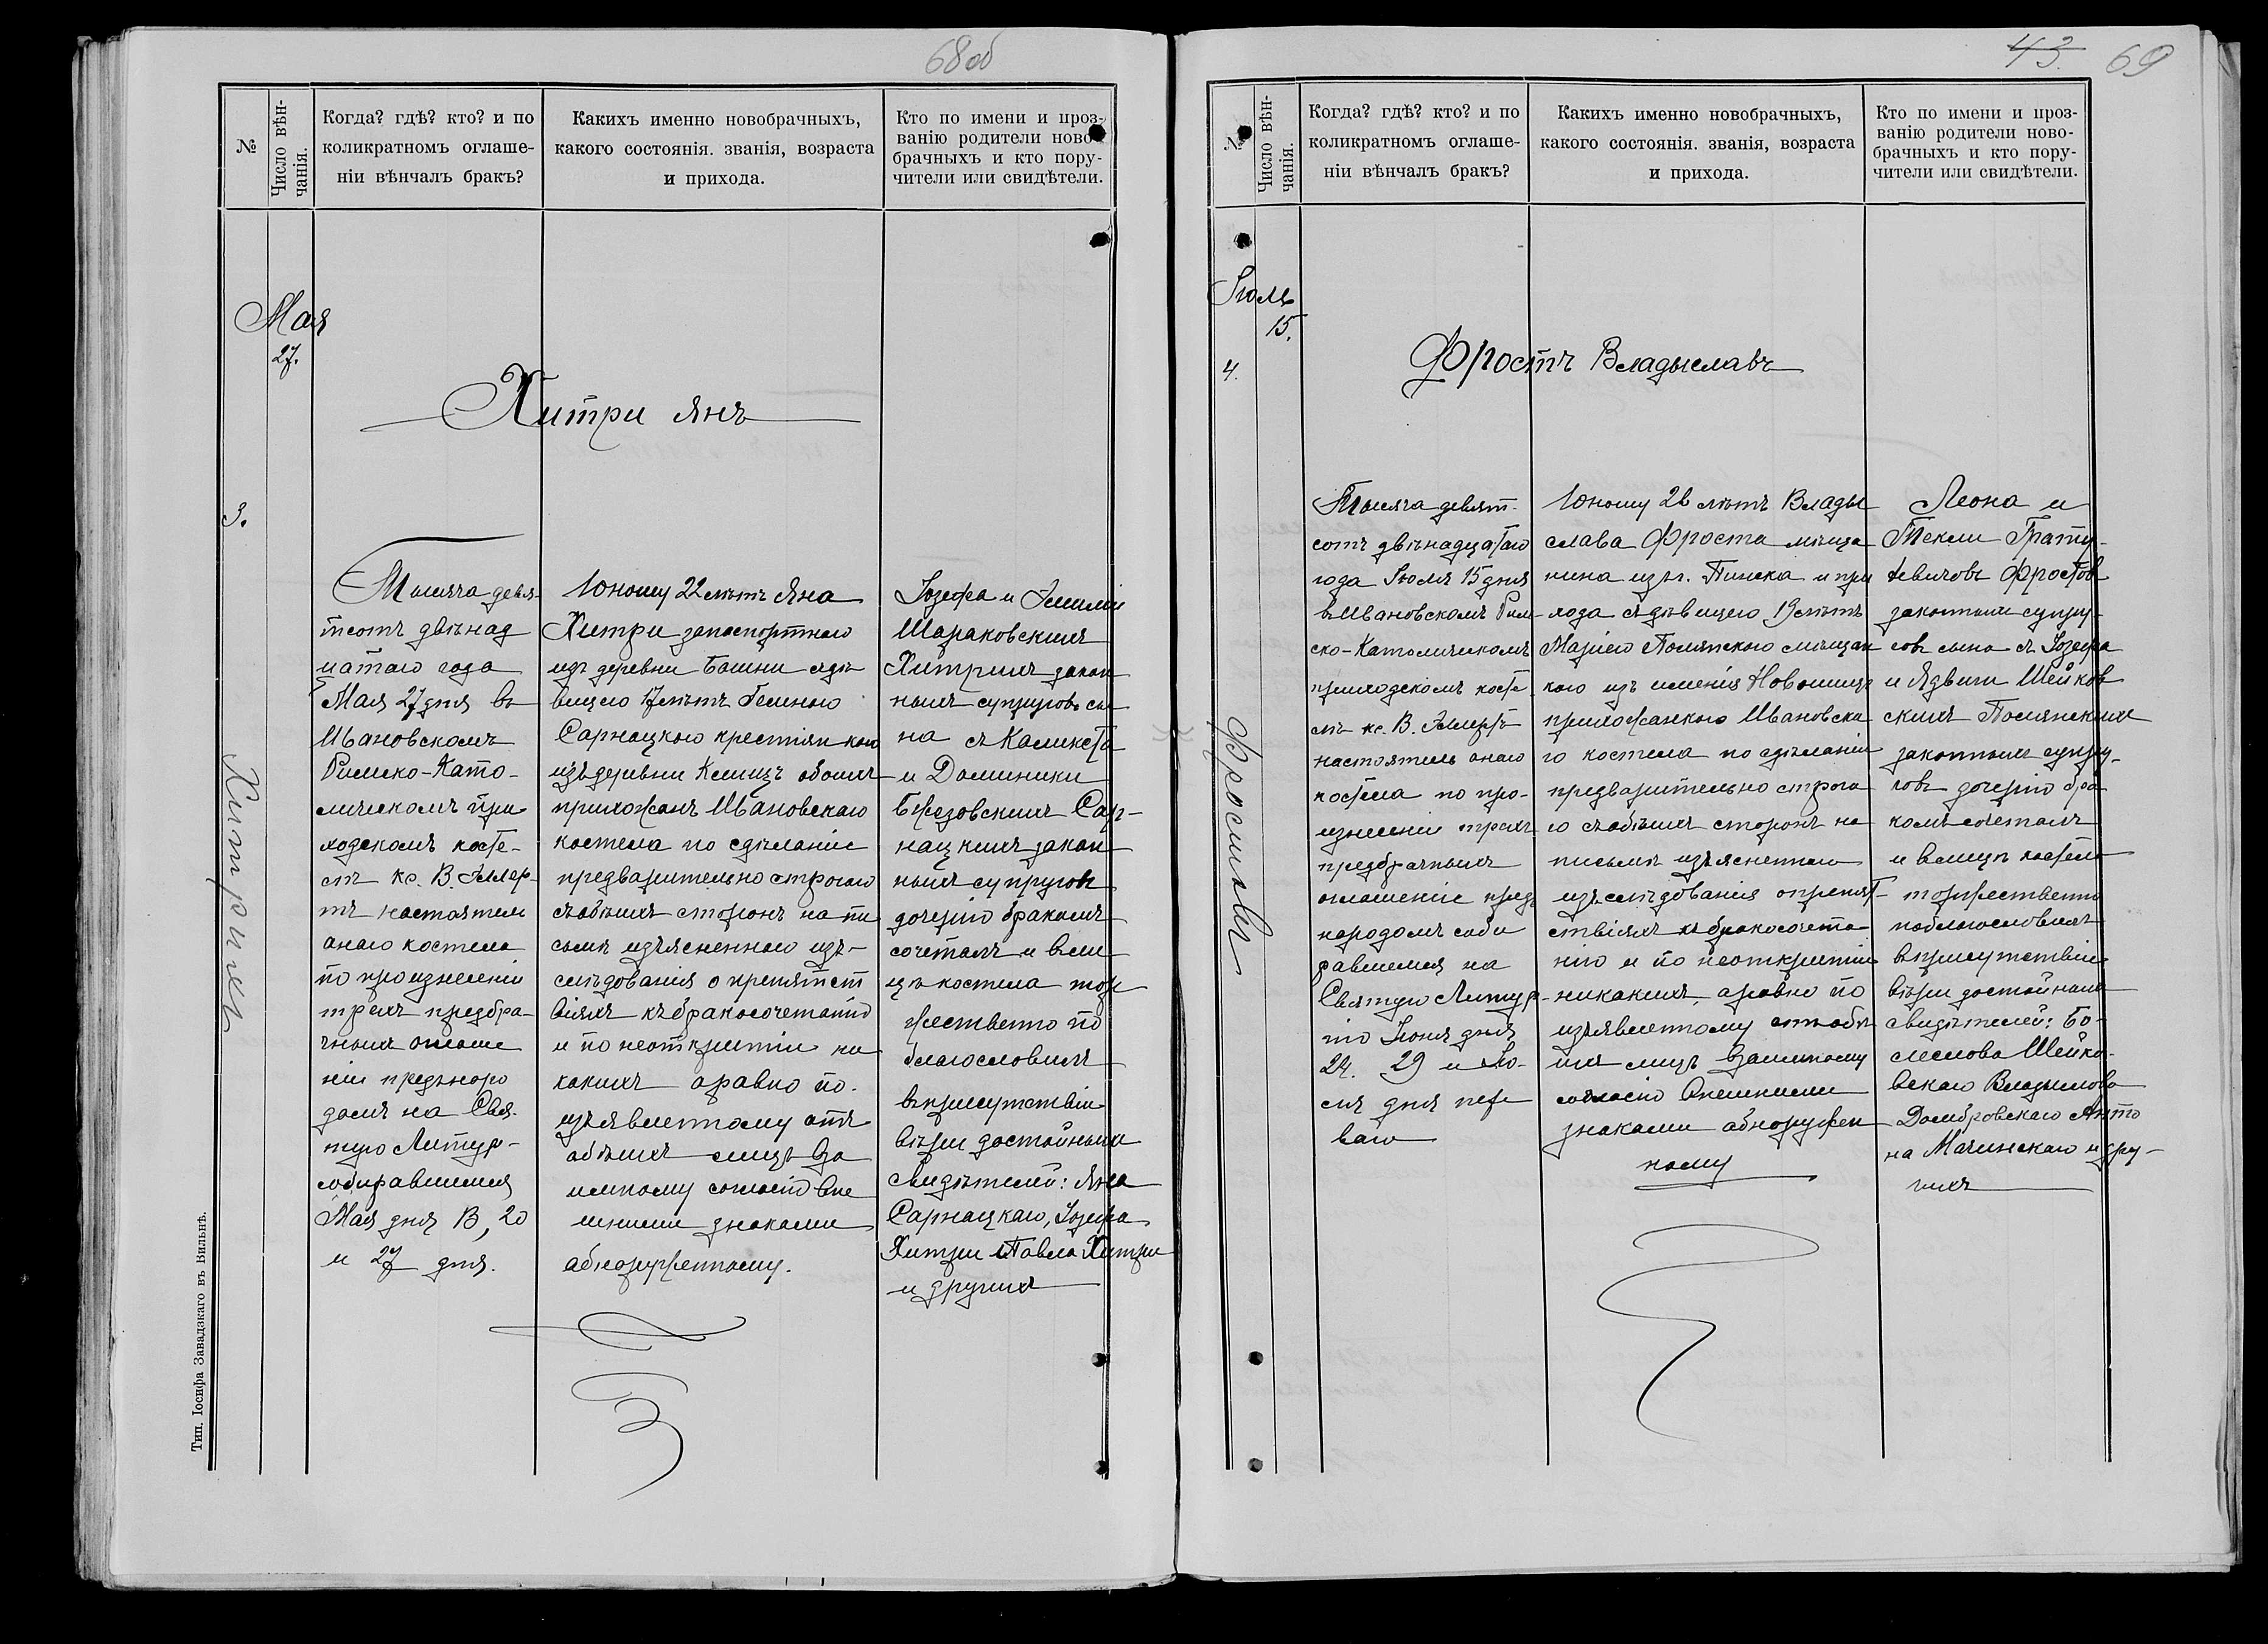 68об
№
Число вѣн-
чанія.
Когда? гдѣ? кто? и по
коликратномъ оглаше-
ніи вѣнчалъ бракъ?
Какихъ именно новобрачныхъ,
какого состоянія. званія, возраста
и прихода.
Кто по имени и проз-
ванію родители ново-
брачныхъ и кто пору-
чители или свидѣтели.
Мая
27.
Хитри Янъ
3.
Тысяча девя-
тсотъ двѣнад
цатаго года
Мая 27 дня въ
Ивановскомъ
Римско-Като-
лическомъ при
ходскомъ косте-
лѣ кс. В. Эллер-
тъ настоятель
онаго костела
по произнесеніи
трехъ предбра-
чныхъ оглаше
ній предънаро
домъ на Свя-
тую Литур-
собиравшимся
Мая дня 13, 20
и 27 дня.
Юношу 22 лѣтъ Яна
Хитри запаспортнаго
изъ деревни Башни сдѣ
вицею 17 лѣтъ Геленою
Сарнацкою крестьян кою
изъ деревни обоихъ
прихожанъ Ивановскаго
костела по сдѣланіи
предварительно строгаго
съобѣихъ сторонъ на пи
сьмѣ изъясненнаго изъ-
слѣдованія о препятст
віяхъ къ бракосочетанію
и по неоткрытіи ни
какихъ аравно по
изъявленному отъ
обѣихъ лицъ вза
имному согласію вне
шними знаками
абнаруженному.
Іозефа и Эмиліи
Шараковскихъ
Хитрихъ закон
ныхъ супруговъ сы
на съ Каликста
и Доминики
Бжезовскихъ Сар-
нацкихъ закон
ныхъ супруговъ
дочерію бракомъ
сочеталъ и в лі
цѣ костела тор
жественно по
благословилъ
въ присутствіи
вѣры достойныхъ
свидѣтелей: Яна
Сарнацкаго, Іозефа
Хитри Павла Хитри
и другихъ
Хитрихъ
Тип. Іосифа Завадзкаго въ Вильнѣ.
43. 69
№
Число вѣн-
чанія.
Когда? гдѣ? кто? и по
коликратномъ оглаше-
ніи вѣнчалъ бракъ?
Какихъ именно новобрачныхъ,
какого состоянія. званія, возраста
и прихода.
Кто по имени и проз-
ванію родители ново-
брачныхъ и кто пору-
чители или свидѣтели.
Іюль
15.
4.
Фростъ Владыславъ
Тысяча девят-
сотъ двѣнадцатаго
года Іюля 15 дня
въ Ивановскомъ Рим-
ско-Католическомъ
приходскомъ косте
лѣ кс. В. Эллертъ
настоятель онаго
костела по про-
изнесеніи трехъ
предбрачныхъ
оглашеніи предъ
народомъ соби
равшимся на
Святую Литур-
гію Іюня дня
24. 29 и Ію-
ля дня пер
ваго
Юношу 26 лѣтъ Влады
слава Фроста мѣща
нина изъ г. Пинска и при
хода съ дѣвицею 19 лѣтъ
Маріею Полянскою мѣщан
кою изъ именія
прихожанкою Ивановска
го костела по сдѣланіи
предварительно строга
го съобѣихъ сторонъ на
письмѣ изъясненнаго
изъслѣдованія опрепят
ствіяхъ к бракосочета
нію и по неоткрытіи
никакихъ, аравно по
изъявленному отъобѣ
ихъ лицъ взаимному
согласію внешними
знаками абнаружен
ному
Леона и
Текли
Фростовъ
законныхъ супру-
говъ сына съ Іозефа
и Ядвиги Шейков
скихъ Полянскихъ
законныхъ супру-
говъ дочерію бра
комъ сочеталъ
и влицѣ костела
торжественно
поблагословилъ
въ присутствіи
вѣры достойныхъ
свидѣтелей: Бо-
леслава Шейко-
вскаго Владыслава
Домбровскаго Анто
на Мачинскаго и дру-
гихъ
Фростовъ